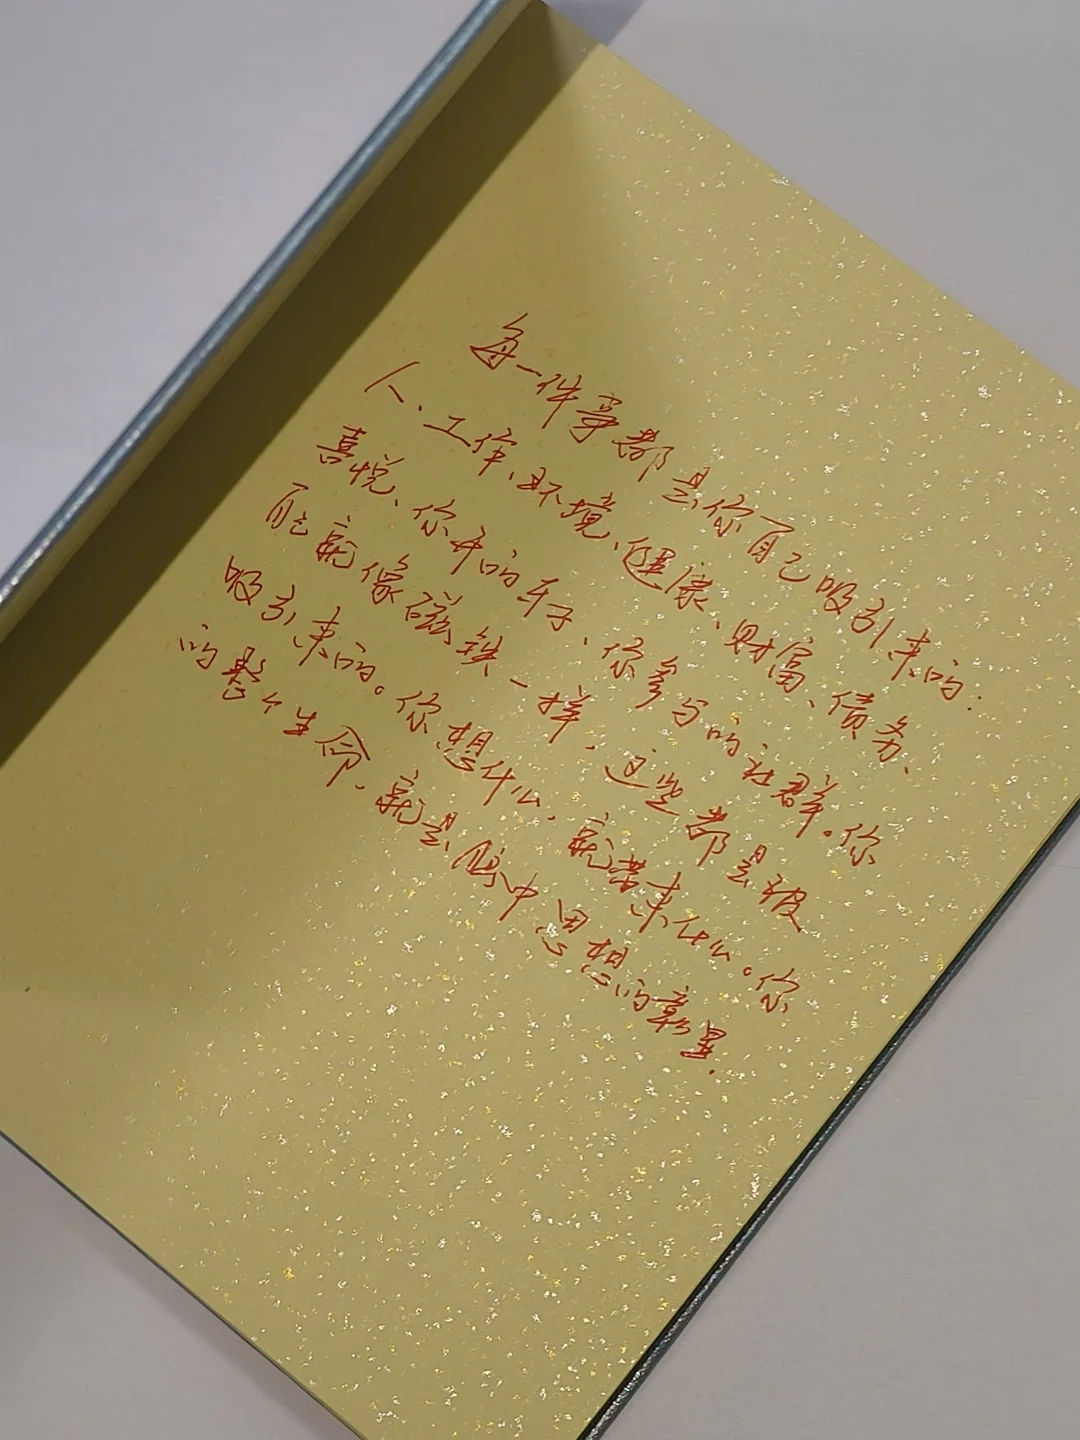 每一件事都是你自己吸引来的:
人、工作、环境、健康、财富、债务、
喜悦、你开的车子、你参与的社群。你
能就像磁铁一样，这些都是被
吸引来的。你想什么，就带来什么。你
的整个生命，就是脑中思想的彰显.